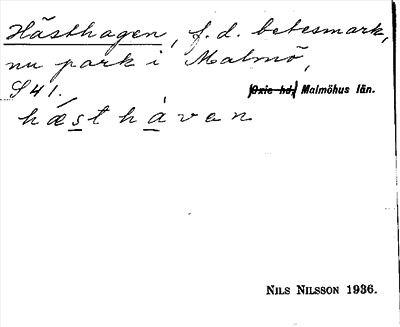 Hästhagen, f.d. betesmark,
nu park i Malmö,
S41. [Oxie hd,] Malmöhus län.
hǽsthàvan
NILS NILSSON 1936.